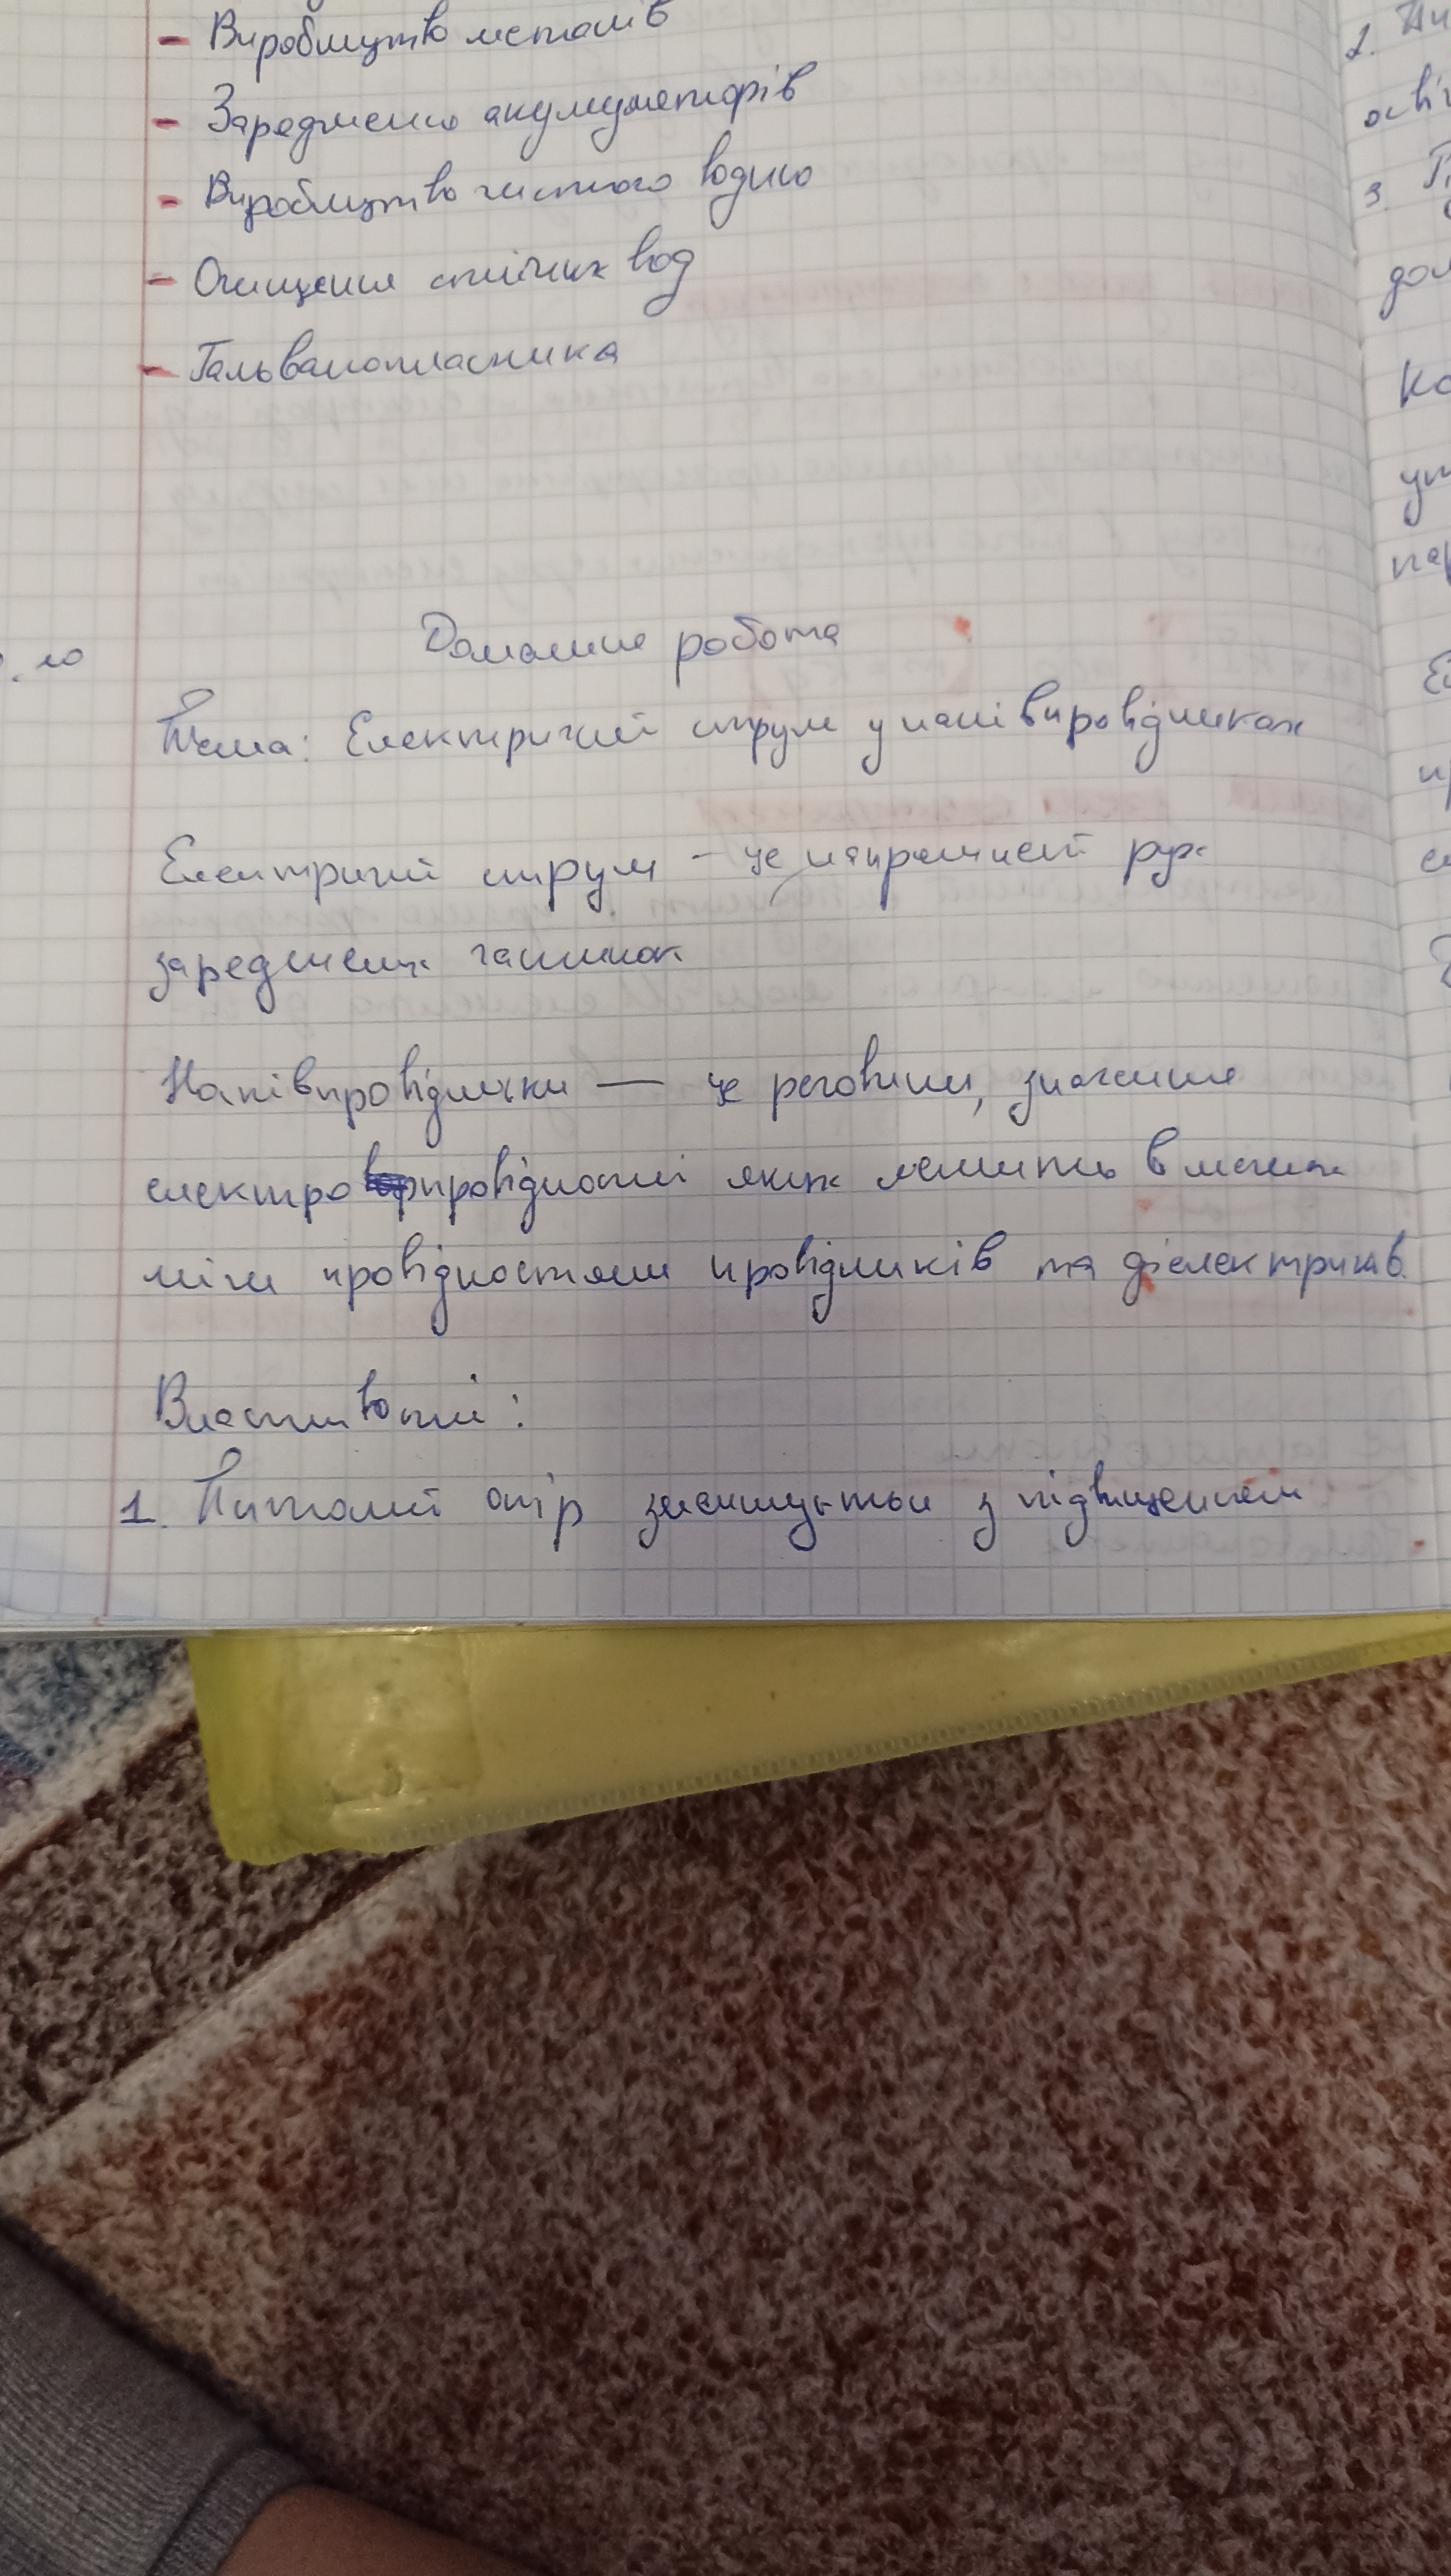 - Виробництво металів
- Зарядження акумуляторів
- Виробництво чистого водню
- Очищення стічних вод
- Гальванопластика
Домашня робота
Тема: Електричний струм у напівпровідниках
Електричний струм - це напрямлений рух
заряджених частинок
Напівпровідники — це речовини, значення
електропровідності яких лежить в межах
між провідностями провідників та діелектриків.
Властивості:
1. Питомий опір зменшується з підвищенням
2.
осві
3.
дом
Ко
ут
пар